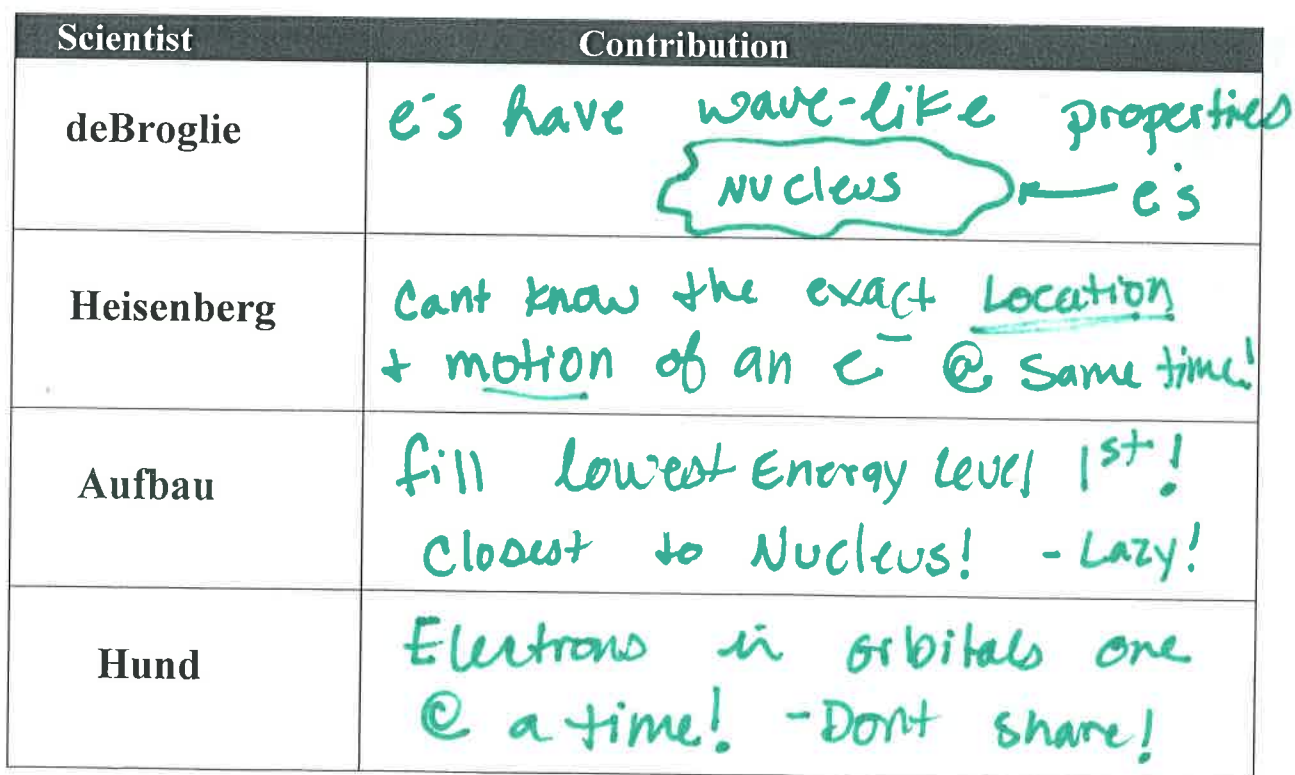 Scientist Contribution
deBroglie e⁻s have wave-like properties
Nucleus e⁻s
Heisenberg Cant know the exact Location
+ motion of an e⁻ @ Same time!
Aufbau fill lowest Energy Level 1st!
Closest to Nucleus! - Lazy!
Hund Electrons in orbitals one
@ a time! - Dont share!